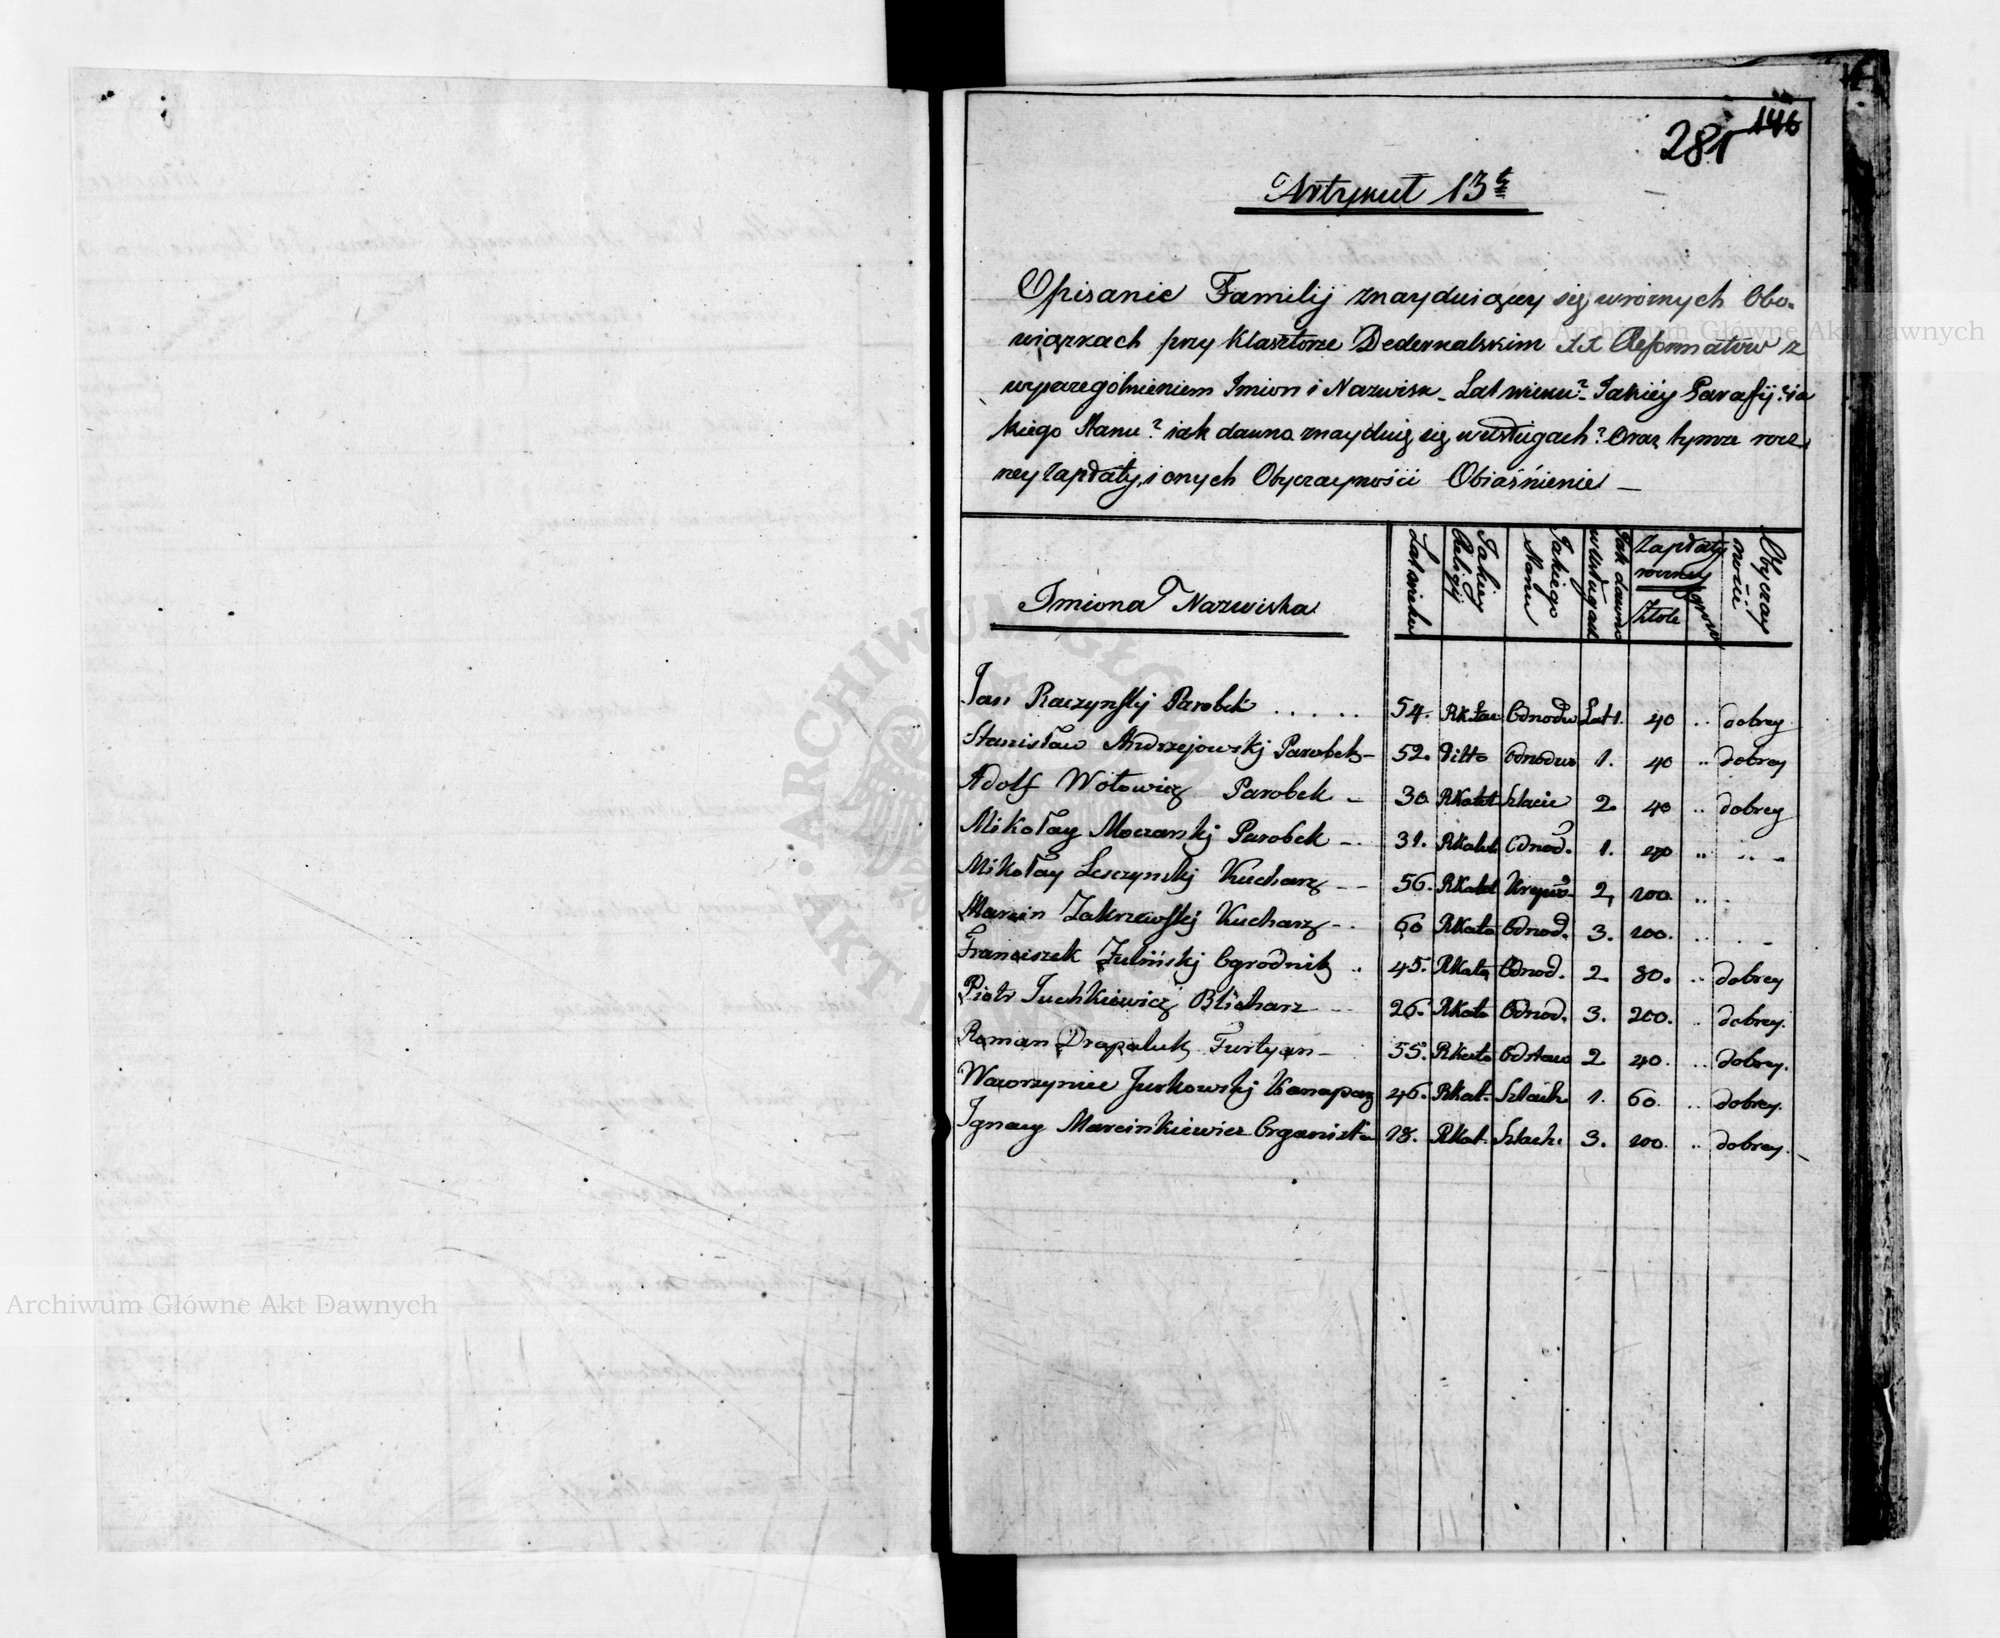 281 146
Artykuł 13ty
Opisanie Familij znayduiącey się w różnych Obo-
wiązkach przy Klasztorze Dederkalskim XX Reformatow z
wyszczegulnieniem Imion i Nazwisk - Lat wieku? Jakiéy Parafij? ia
kiego Stanu? iak dawno znayduią się w usługach? Oraz tymże rocz
ney zapłaty, i onych Obyczayności Obiaśnienie —
Imiona Nazwiska Lat wieku Jakiey Religij Jakiego Stanu Jak dawno w usługach Zapłaty roczney Złote grosze Obyczay ności
Jan Raczynskij Parobek . . . . . 54. Odnodw Lat 1. 40 .. dobrey
Stanisław Andrzejowskij Parobek - 52. Ditto Odnodw 1. 40 .. dobrey
Adolf Wołowicz Parobek - 30. RKatol Szlacic 2. 40 .. dobrey
Mikołay Moczarskij Parobek - . 31. RKatol Odnod. 1. 40 .. .. -
Mikołay Leszczynskij Kucharz - - 56. RKatol 2, 200. .. .
Marcin Zakrzewskij Kucharz - . 60 RKato Odnod. 3. 200. .. . -
Franciszek Zulińskij Ogrodnik .. 45. RKato Odnod. 2 80. .. dobrey
Piotr Juchkiewicz Blicharz - - 26. RKato Odnod. 3. 200. .. dobrey.
Roman Drapaluk Furtyan - 55. RKato Odstaw 2 40. .. dobrey.
Wawrzyniec Jurkowskij Kanaparz 46. RKat. Szlach. 1. 60. .. dobrey.
Ignacy Marcinkiewicz Organista 28. RKat. Szlach. 3. 200. .. dobrey. -
Archiwum Główne Akt Dawnych
Archiwum Główne Akt Dawnych